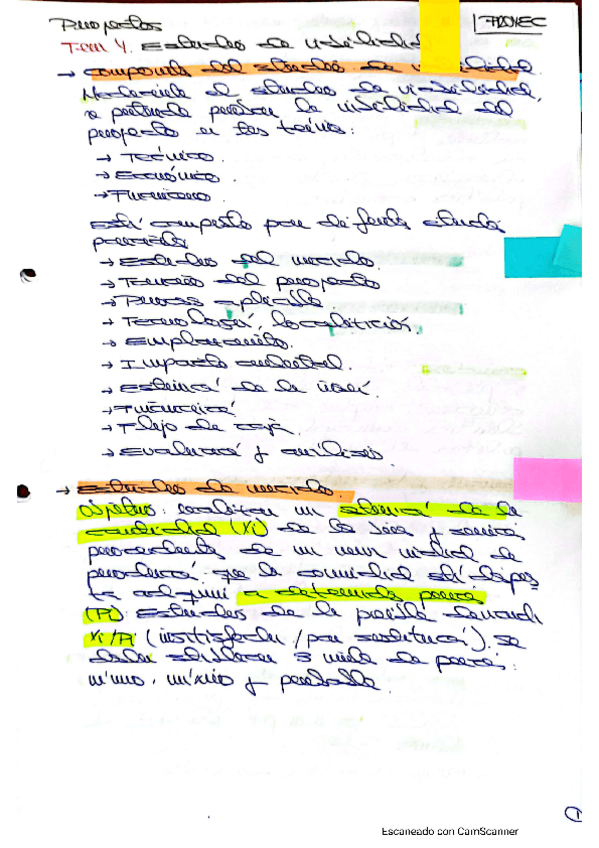 Proyectos
Tem 4. Estudio de viabilidad
→ componentes del estudio de viabilidad.
Mediante el estudio de viabilidad,
se pretende la viabilidad del
proyecto en los términos:
→ Técnico.
→ Económico.
→ Financiero.
Está compuesto por diferentes estudios
parciales
→ Estudio del mercado.
→ Tamaño del proyecto
→ Tecnología, localización.
→ Emplazamiento.
→ Impacto ambiental.
→ Estimación de la
→ Financiera
→ Flujo de caja.
→ Evaluación y análisis.
→ Estudio de mercado.
Objetivo: realizar una estimación de la
cantidad (Xi) de los bienes y servicios
procedentes de una nueva unidad de
producción que la comunidad está dispues
ta adquirir a determinados precios
(Pi). Estudios de la posible demanda
Xi/Pi (insatisfecha / por sustitución). Se
deben establecer 3 niveles de precios:
mínimo, máximo y probable.
1
Escaneado con CamScanner